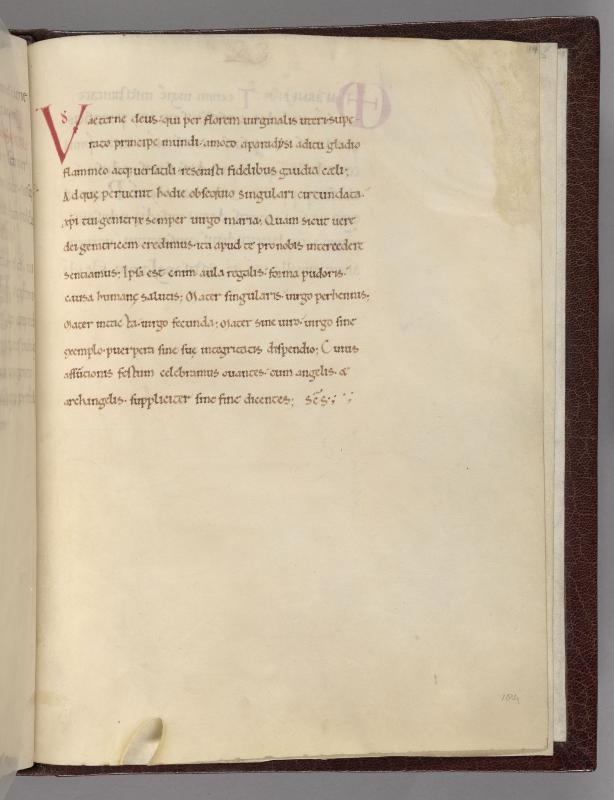 VS aeterne deus; qui per florem uirginalis uteri· supe-
rato principe mundi· amoto a paradysi aditu gladio
flammeo atq; uersatili· reserasti fidelibus gaudia cæli;
Ad quę peruenit hodie obsequio singulari circundata·
xp̄i tui genitrix semper uirgo maria; Quam sicut uere
dei genitricem credimus· ita apud te pro nobis intercedere
sentiamus; Ipsa est enim aula regalis· forma pudoris·
causa humanę salutis; Mater singularis· uirgo perhennis;
Mater intacta· uirgo fecunda; Mater sine uiro· uirgo sine
exemplo· puerpera sine suę integritatis dispendio; Cuius
assūtionis festum celebramus ouantes· cum angelis· &
archangelis· suppliciter sine fine dicentes; S̄c̄S·